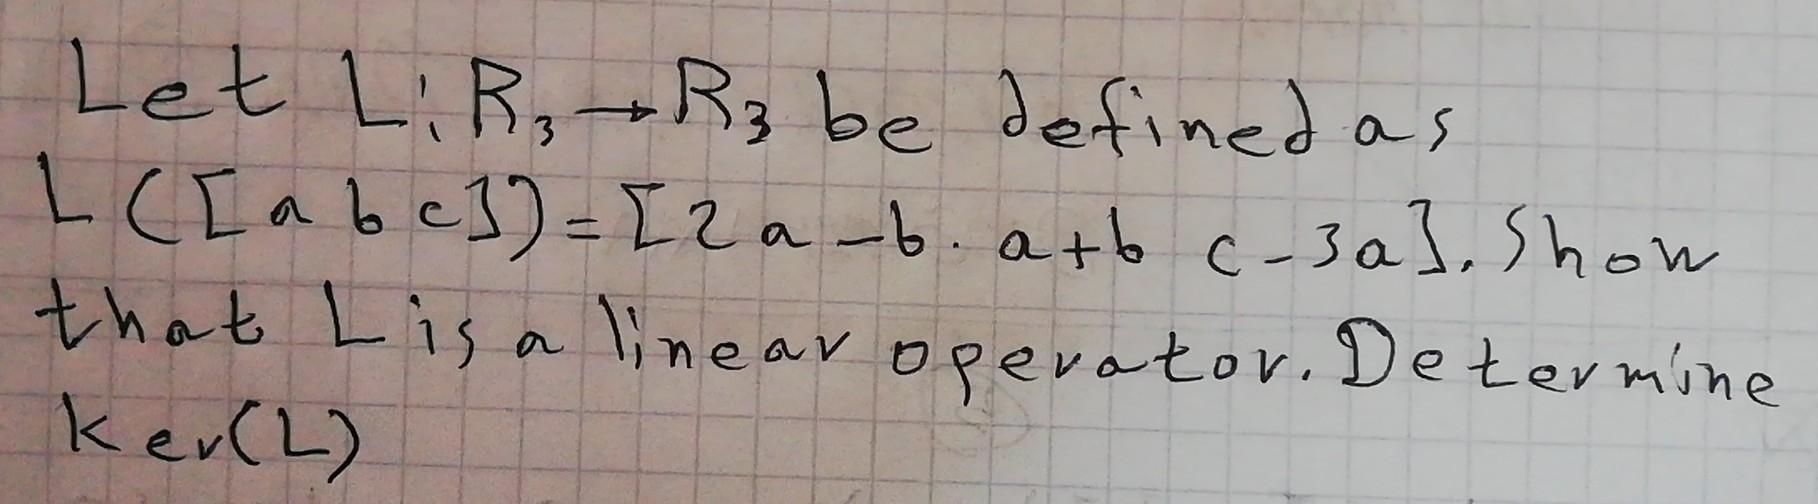 Let L: R₃ → R₃ be defined as
L([a b c]) = [2a-b. a+b c-3a]. Show
that L is a linear operator. Determine
Ker(L)